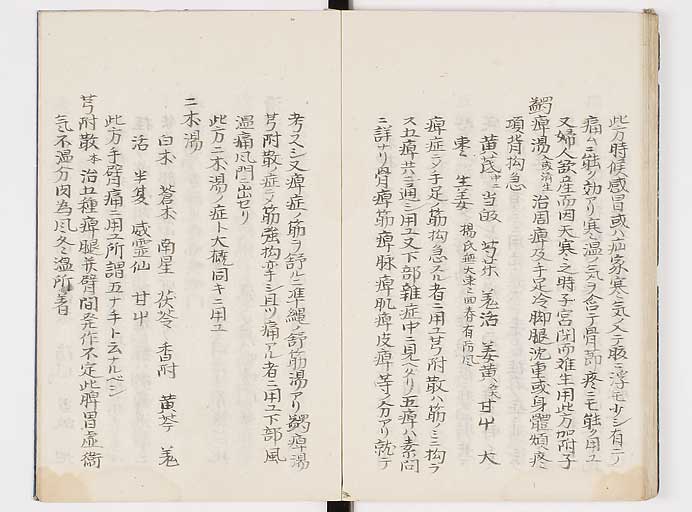 此方時候感冒或ハ疝家寒ニ気入テ腹ニ浮モ少シ有ニテ
痛ムニ能ク効アリ寒ニ温ノ気ヲ含テ骨節疼ニモ能ク用ユ
又婦人欲産而因天寒之時子宮閉而難生用此方加附子
蠲痺湯 済生 治周痺及手足冷脚腿沈重或身體煩疼
項背拘急
黄芪 当皈 芍薬 羌活 姜黄 甘草 大
棗 生姜 楊氏無大棗 回春有防風
痺症ニシテ手足ノ筋拘急スル者ニ用ユ芎附散ハ筋ノミニ拘ラ
ス五痺共ニ通シ用ユ又下部雜症中ニ見ヘタリ五痺ハ素問
ニ詳ナリ骨痺筋痺脉痺肌痺皮痺等ノ分アリ就テ
考スヘシ又痺症ノ筋ヲ舒ルニ準繩ノ舒筋湯アリ蠲痺湯
芎附散ノ症ニノ筋強拘挛シ且ツ痛アル者ニ用ユ下部風
温痛風門ニ出セリ
此方二木湯ノ症ト大概同キニ用ユ
二木湯
白木 蒼木 南星 茯苓 香附 黄芩 羌
活 半夏 威霊仙 甘草
此方手臂痛ニ用ユ所謂五十手ト云ナルヘシ
芎附散 本 治五種痺腿并臂間発作不定此脾胃虚衛
気不温分肉為風冬温所着